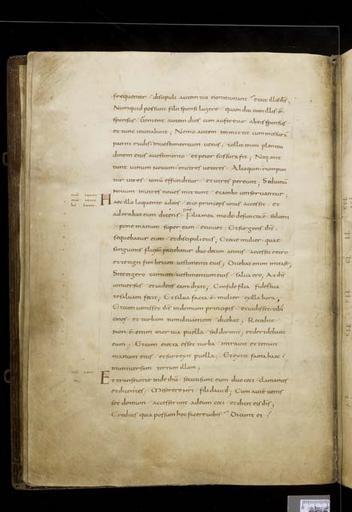 frequenter discipuli autem tui non ieiunant et ait illis ihs
Numquid possunt filii sponsi lugere quam diu cum illis est
sponsus Uenient autem dies cum auferetur ab eis sponsus
et tunc ieiunabunt Nemo autem inmittit commissuram
panni rudis in uestimentum uetus tollit enim plenitu
dinem eius a uestimento et peior scissura fit Neq mit
tunt uinum nouum in utres ueteres Alioquin rumpun
tur utres et uinum effunditur et utres pereunt Sed uinum
nouum in utres nouos mittunt et ambo conseruantur
Haec illo loquente ad eos ecce princeps unus accessit et
adorabat eum dicens Filia mea modo defuncta est sed ueni
pone manum super eam et uiuet Et surgens ihs
sequebatur eum et discipuli eius Et ecce mulier quae
sanguinis fluxum patiebatur duodecim annis accessit retro
et tetigit fimbriam uestimenti eius Dicebat enim intra se
Si tetigero tantum uestimentum eius salua ero At ihs
conuersus et uidens eam dixit Confide filia fides tua
te saluam fecit Et salua facta est mulier ex illa hora
Et cum uenisset ihs in domum principis et uidisset tibi
cines et turbam tumultuantem dicebat Recedite
non est enim mortua puella sed dormit et deridebant
eum Et cum eiecta esset turba intrauit et tenuit
manum eius et surrexit puella Et exiit fama haec
in uniuersam terram illam
Et transeunte inde ihu secuti sunt eum duo caeci clamantes
et dicentes Miserere nri fili dauid Cum autem uenis
set domum accesserunt ad eum caeci et dicit eis ihs
Creditis quia possum hoc facere uobis Dicunt ei